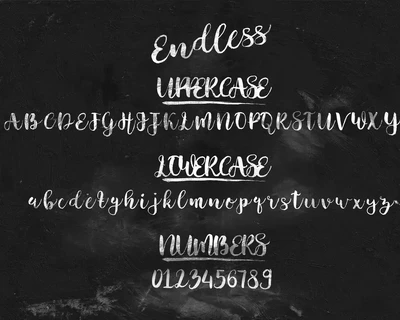 Endless
UPPERCASE
ABCDEFGHIJKLMNOPQRSTUVWXY
LOWERCASE
abcdefghijklmnopqrstuvwxyz
NUMBERS
0123456789